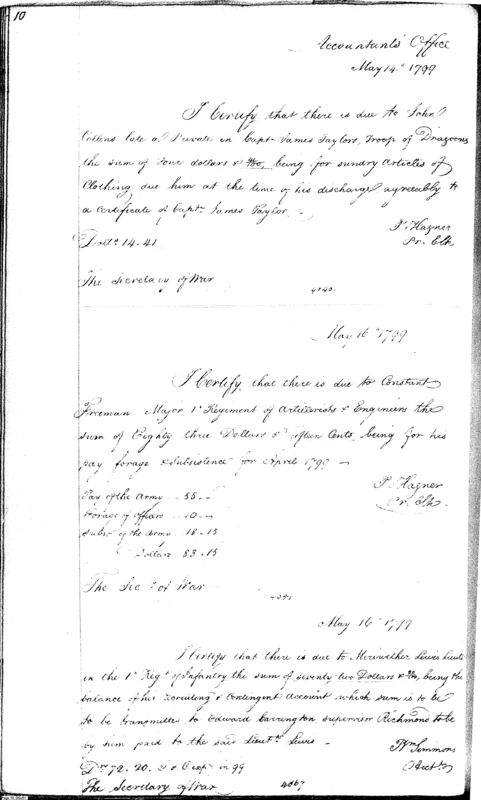 10
Accountants Office
May 14th 1799
I Certify that there is due to John
Collins late a Private in Captn James Taylors, Troop of Dragoons
the sum of Four dollars & being for sundry Articles of
Clothing due him at the time of his discharge agreeably to
a Certificate of Captn James Taylor
P. Hagner
Pr. Clk
Dolls 14.41
The Secretary of War
4040
May 16th 1799
I Certify, that there is due to Constant
Freeman Major 1st Regiment of Artillerists & Engineers the
sum of Eighty three Dollars & fifteen Cents, being for his
pay forage & subsistence for April 1799 —
P. Hagner
Pr. Clk
Pay of the Army .. 55 . —
Forage of Officers .. 10 . —
Subsce of the Army .. 18 . 15
Dollars 83 . 15
The Secy of War
May 16th 1799
I Certify that there is due to Meriwether Lewis Lieut
in the 1st Regt of Infantry the sum of seventy two Dollars & being the
balance of his Recruiting & Contingent Account which sum is to be
to be transmitted to Edward Carrington supervisor Richmond to be
by him paid to the said Lieutt Lewis —
Wm Simmons
Acct
Drs 72.20. in 99
The Secretary of War
4067